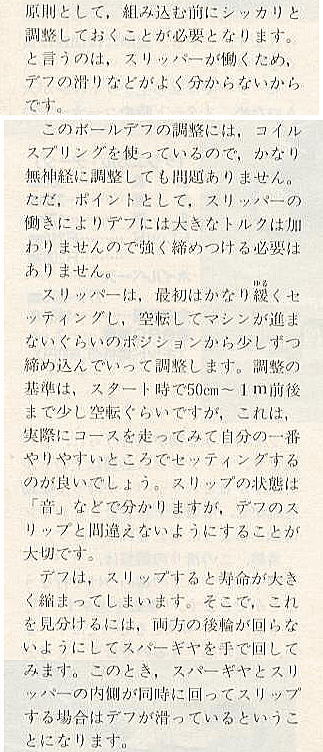 原則として，組み込む前にシッカリと
調整しておくことが必要となります。
と言うのは，スリッパーが働くため，
デフの滑りなどがよく分からないから
です。
このボールデフの調整には，コイル
スプリングを使っているので，かなり
無神経に調整しても問題ありません。
ただ，ポイントとして，スリッパーの
働きによりデフには大きなトルクは加
わりませんので強く締めつける必要は
ありません。
スリッパーは，最初はかなり緩くセ
ッティングし，空転してマシンが進ま
ないぐらいのポジションから少しずつ
締め込んでいって調整します。調整の
基準は，スタート時で50cm～１ｍ前後
まで少し空転ぐらいですが，これは，
実際にコースを走ってみて自分の一番
やりやすいところでセッティングする
のが良いでしょう。スリップの状態は
「音」などで分かりますが，デフのス
リップと間違えないようにすることが
大切です。
デフは，スリップすると寿命が大き
く縮まってしまいます。そこで，これ
を見分けるには，両方の後輪が回らな
いようにしてスパーギヤを手で回して
みます。このとき，スパーギヤとスリ
ッパーの内側が同時に回ってスリップ
する場合はデフが滑っているというこ
とになります。